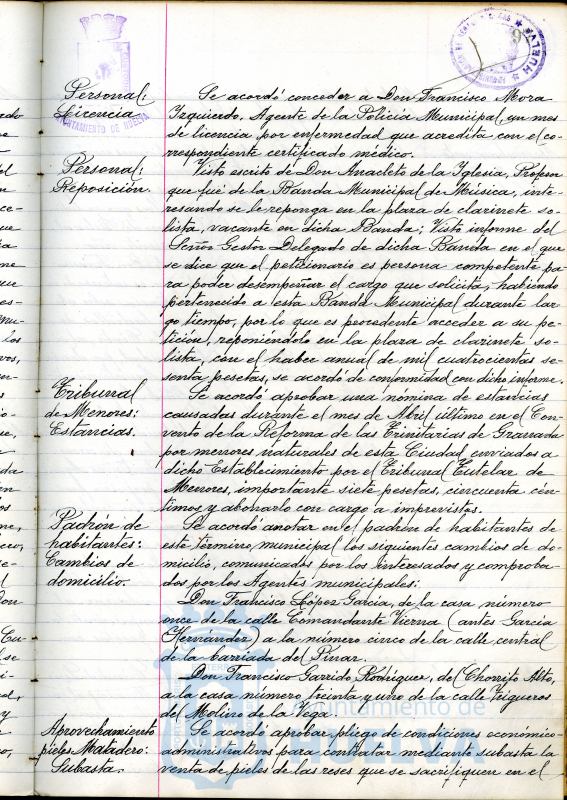 Personal:
Licencia
Se acordó conceder a Don Francisco Mora
Izquierdo, Agente de la Policía Municipal, un mes
de licencia por enfermedad que acredita con el co-
rrespondiente certificado médico.
Personal:
Reposición.
Visto escrito de Don Anacleto de la Iglesia, Profesor
que fué de la Banda Municipal de Música, inte-
resando se le reponga en la plaza de clarinete so-
lista, vacante en dicha Banda; Visto informe del
Señor Gestor Delegado de dicha Banda en el que
se dice que el peticionario es persona competente pa-
ra poder desempeñar el cargo que solicita, habiendo
pertenecido a esta Banda Municipal durante lar-
go tiempo, por lo que es procedente acceder a su pe-
tición, reponiéndolo en la plaza de clarinete so-
lista, con el haber anual de mil cuatrocientas se-
senta pesetas, se acordó de conformidad con dicho informe.
Tribunal
de Menores:
Estancias.
Se acordó aprobar una nómina de estancias
causadas durante el mes de Abril último en el Con-
vento de la Reforma de las Trinitarias de Granada
por menores naturales de esta Ciudad enviados a
dicho Establecimiento por el Tribunal Tutelar de
Menores, importante siete pesetas, cincuenta cén-
timos y abonarlo con cargo a imprevistos.
Padrón de
habitantes:
Cambios de
domicilio.
Se acordó anotar en el padrón de habitantes de
este término municipal los siguientes cambios de do-
micilio, comunicados por los interesados y comproba-
dos por los Agentes municipales:
Don Francisco López García, de la casa número
once de la calle Comandante Vierna (antes Garcia
Hernández) a la número cinco de la calle central
de la barriada del Pinar.
Don Francisco Garrido Rodríguez, del Chorrito Alto,
a la casa número treinta y uno de la calle Trigueros
del Molino de la Vega.
Aprovechamiento
pieles Matadero:
Subasta.
Se acordó aprobar pliego de condiciones económico-
administrativas para contratar mediante subasta la
venta de pieles de las reses que se sacrifiquen en el
AYUNTAMIENTO DE HUELVA
HUELVA
Ayuntamiento de